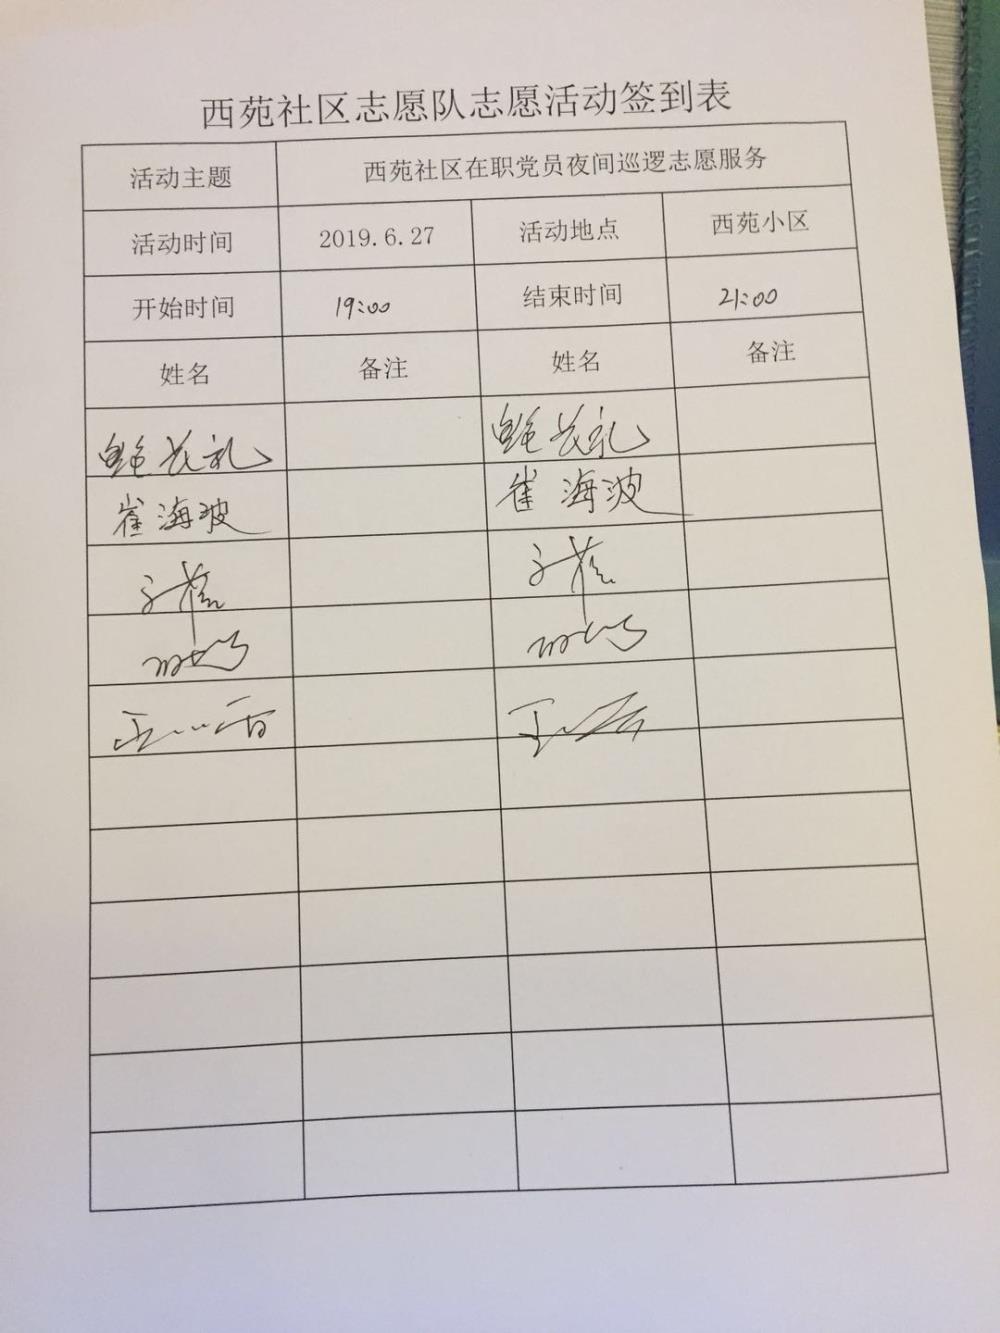 西苑社区志愿队志愿活动签到表
活动主题 西苑社区在职党员夜间巡逻志愿服务
活动时间 2019.6.27 活动地点 西苑小区
开始时间 19:00 结束时间 21:00
姓名 备注 姓名 备注
鲍长礼 鲍长礼
崔海波 崔海波